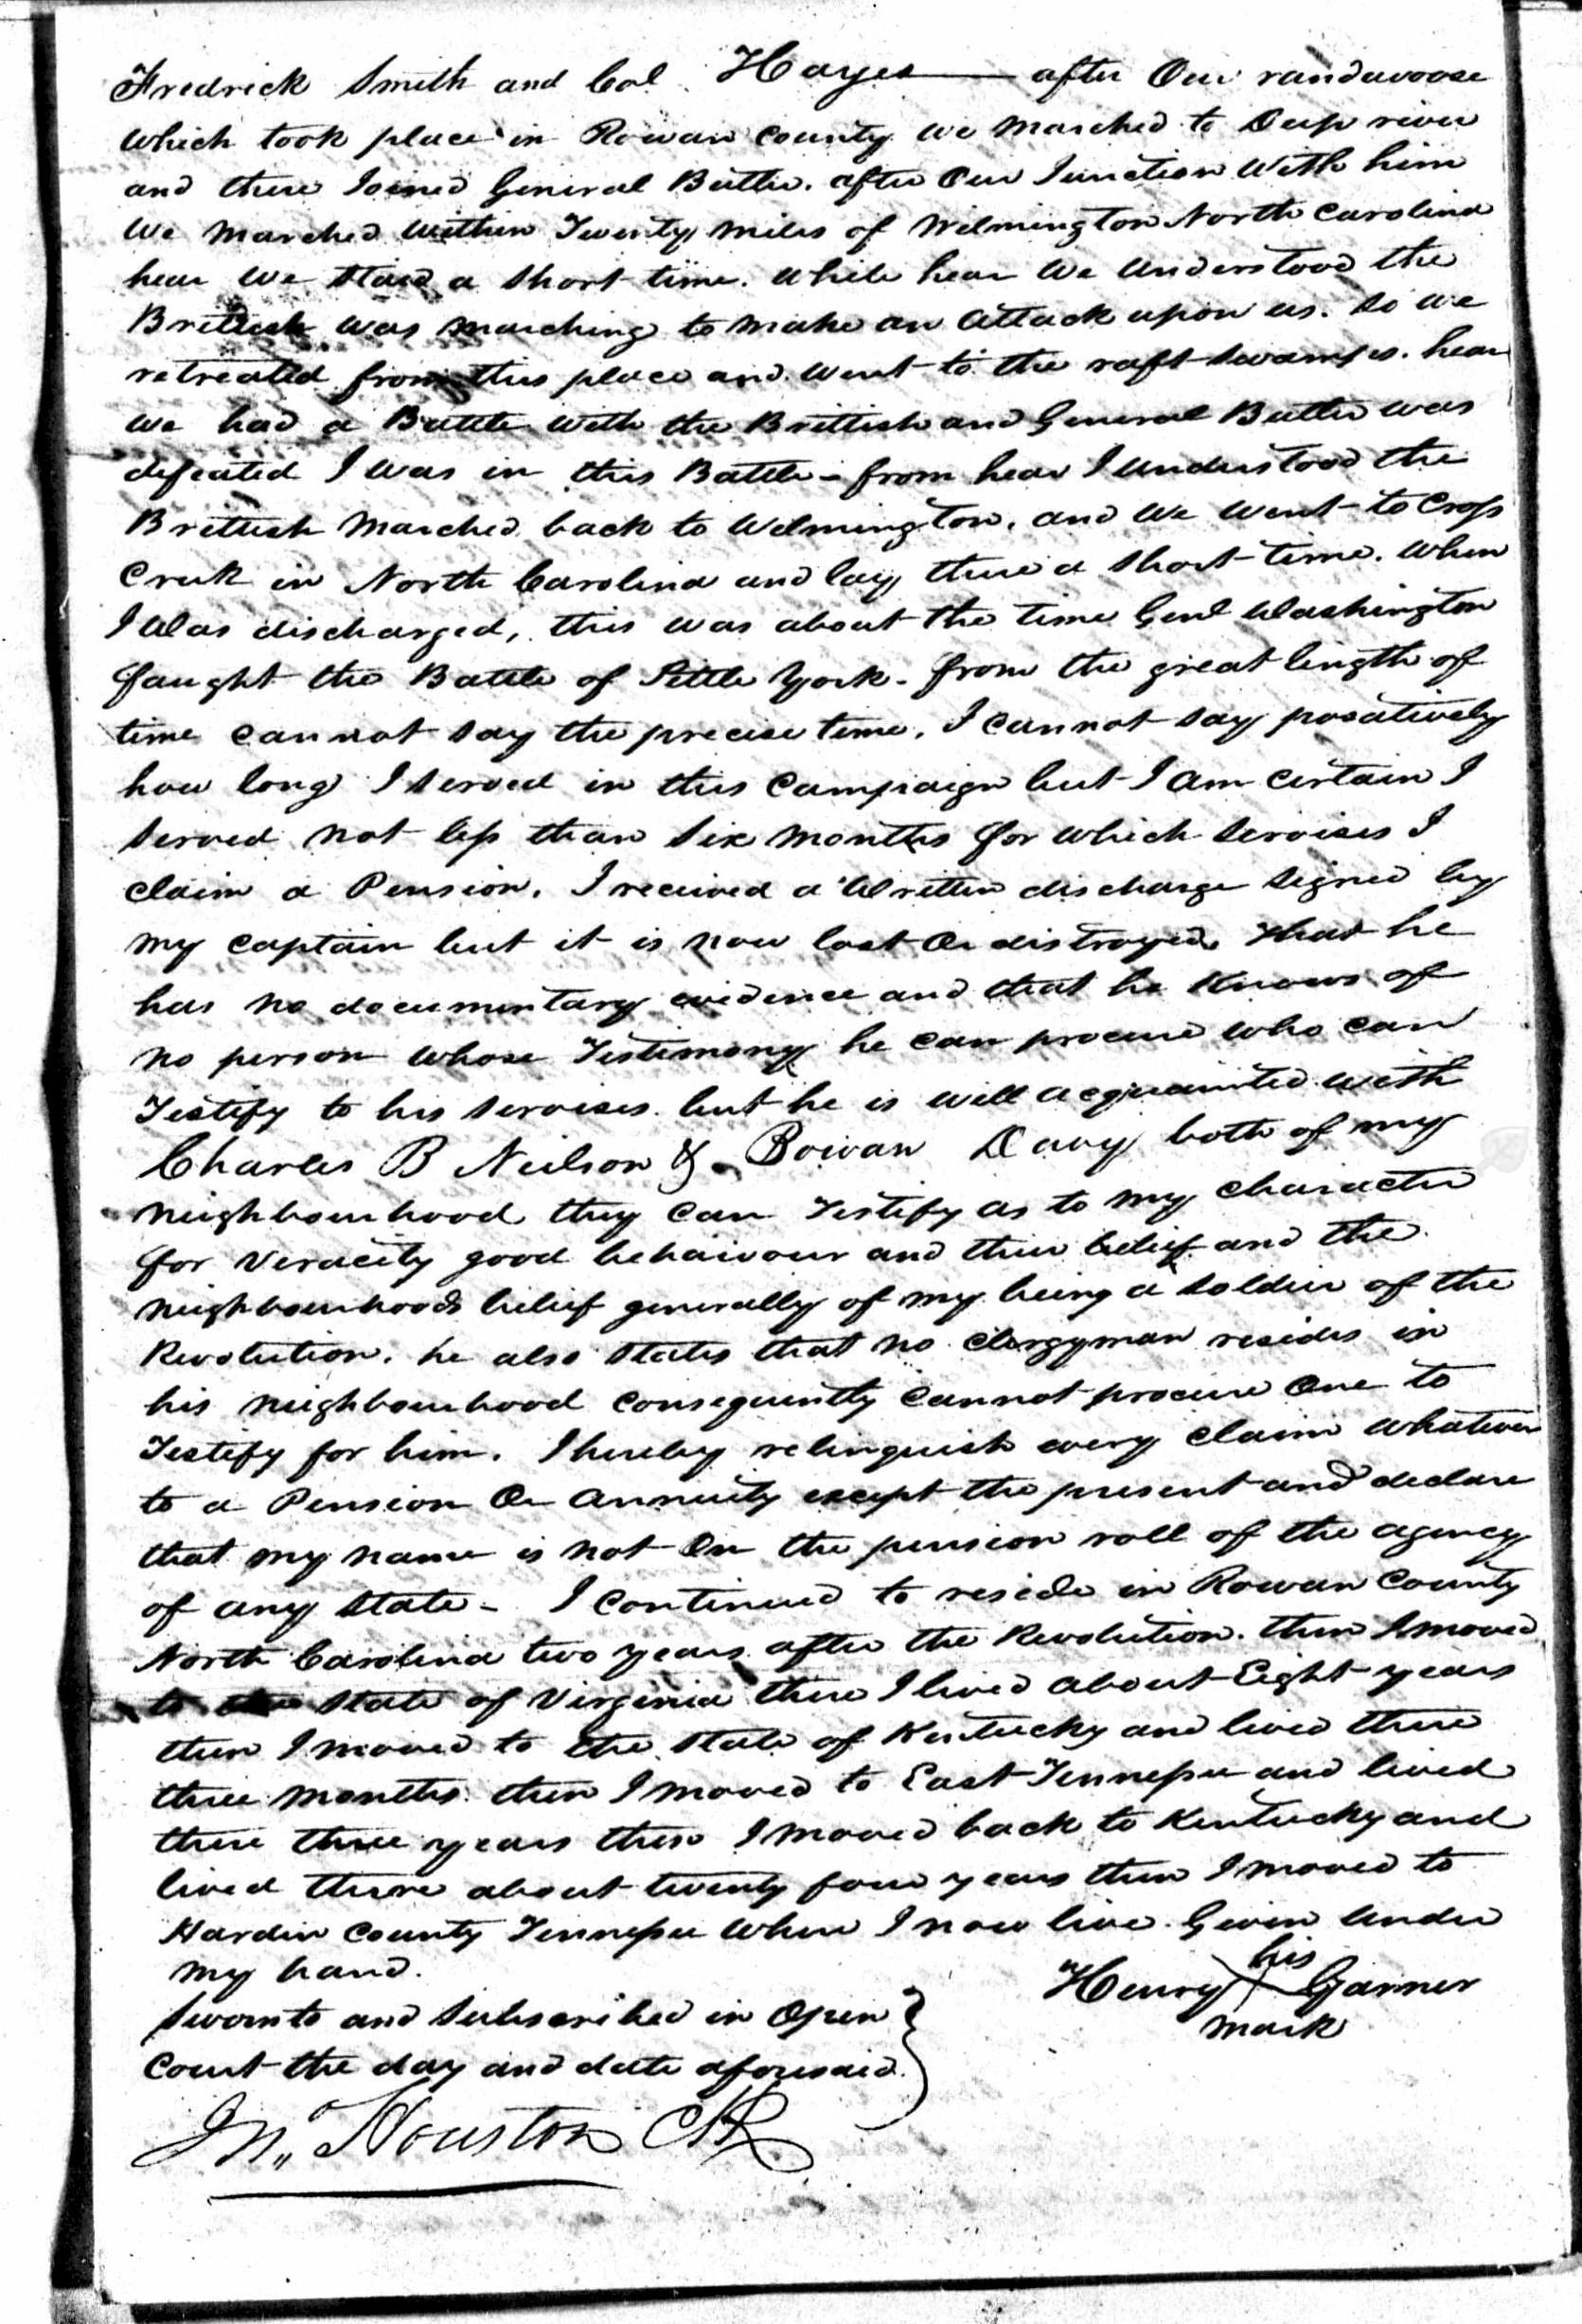 Fredrick Smith and Col. Hayes — after Our randavoose
which took place in Rowan County we marched to Deep river
and there Joined General Butler. after Our Junction With him
We marched within Twenty miles of Wilmington North Carolina
hear We staid a short time. While hear We Understood the
Brittish was marching to make an attack upon us. so we
retreated from this place and went to the raft swamps. hear
we had a Battle with the Brittish and General Butler was
defeated I was in this Battle - from hear I Understood the
Brittish Marched back to Wilmington, and We went to Cross
Creek in North Carolina and lay there a short time. When
I Was discharged, this was about the time Genl Washington
faught the Battle of Little York - from the great length of
time cannot say the precise time, I cannot say posatively
how long I served in this Campaign but I am certain I
served not less than six months for which servises I
claim a Pension. I received a Written discharge signed by
my captain but it is now lost Or distroyed. that he
has no documentary evidence and that he knows of
no person whose Testimony he can procure who can
Testify to his servises but he is well acquainted with
Charles B Neilson & Rowan Davy both of my
neighbourhood they can Testify as to my character
for veracity good behaivour and their belief and the
neighbourhoods belief generally of my being a soldier of the
Revolution. he also states that no clergyman resides in
his neighbourhood consequently cannot procure One to
Testify for him. I hereby relinquish every claim whatever
to a Pension Or annuity except the present and declare
that my name is not On the pension roll of the agency
of any state - I continued to reside in Rowan County
North Carolina two years after the Revolution. then I moved
to the state of Virginia there I lived about Eight years
then I moved to the state of Kentucky and lived there
three months then I moved to East Tennessee and lived
there three years then I moved back to Kentucky and
lived there about twenty four years then I moved to
Hardin County Tennessee Where I now live. Given Under
my hand.
his
Henry X Garner
mark
Sworn to and Subscribed in Open
Court the day and date aforesaid.
Jno. Houston Clk